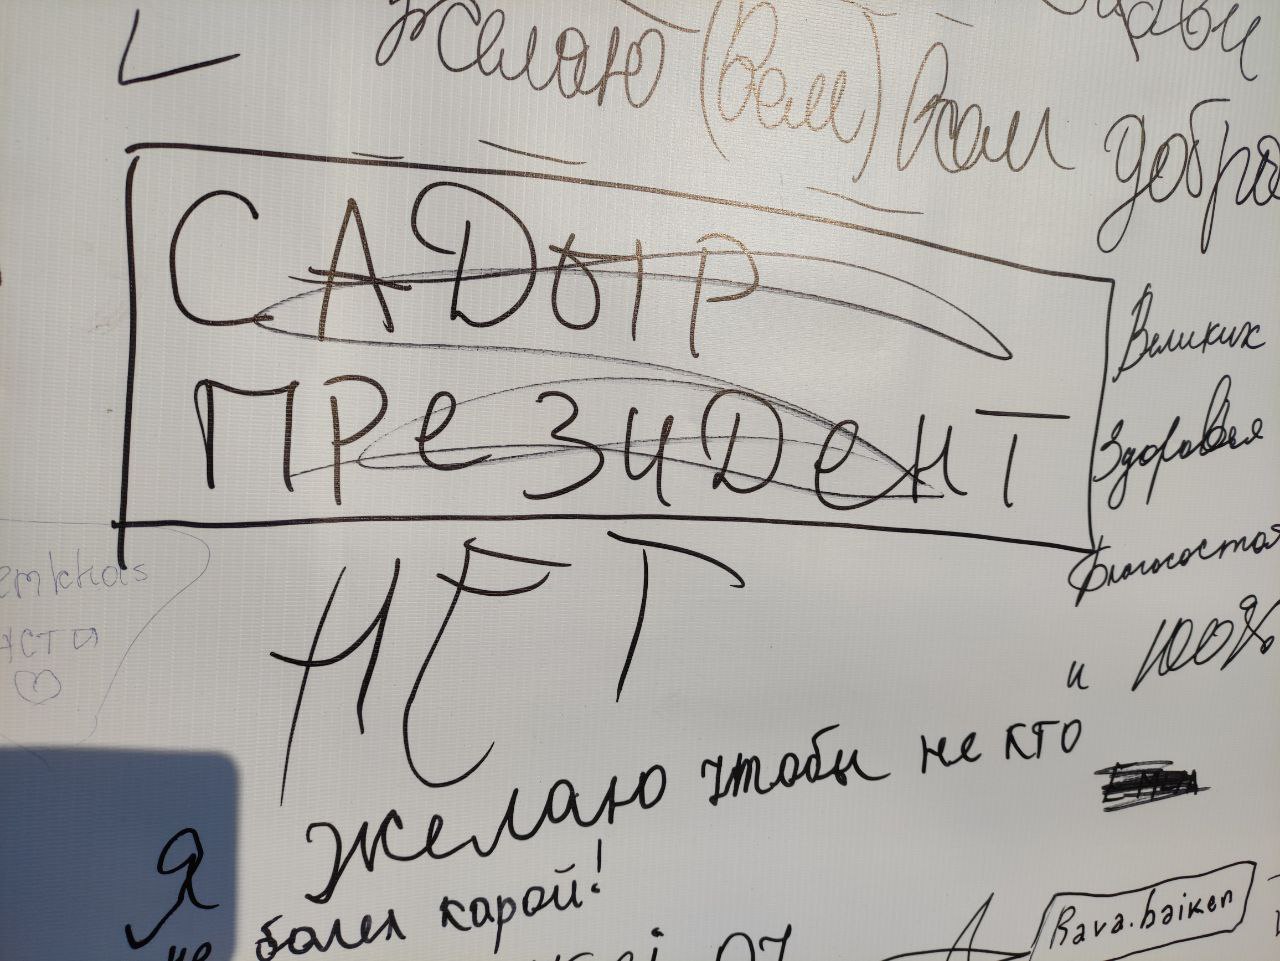 Желаю (Вам) Вам добра
САДЫР
ПРезиДеНТ
НЕТ
Великих
Здоровья
и 100%
Я Желаю чтобы не кто
не болел карой!
Rava.baiken